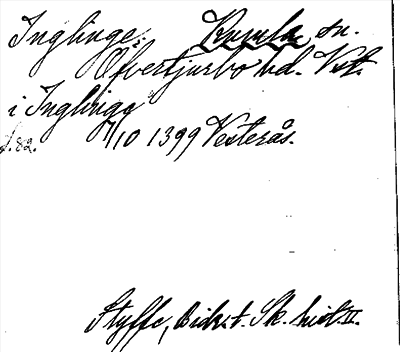 Inglinge. Kumla sn.
Öfvertjurbo hd. Vst.
i Inglingg
1/10 1399 Vesterås.
f. 82.
Styffe, Bidr. t. Sk. hist. II.